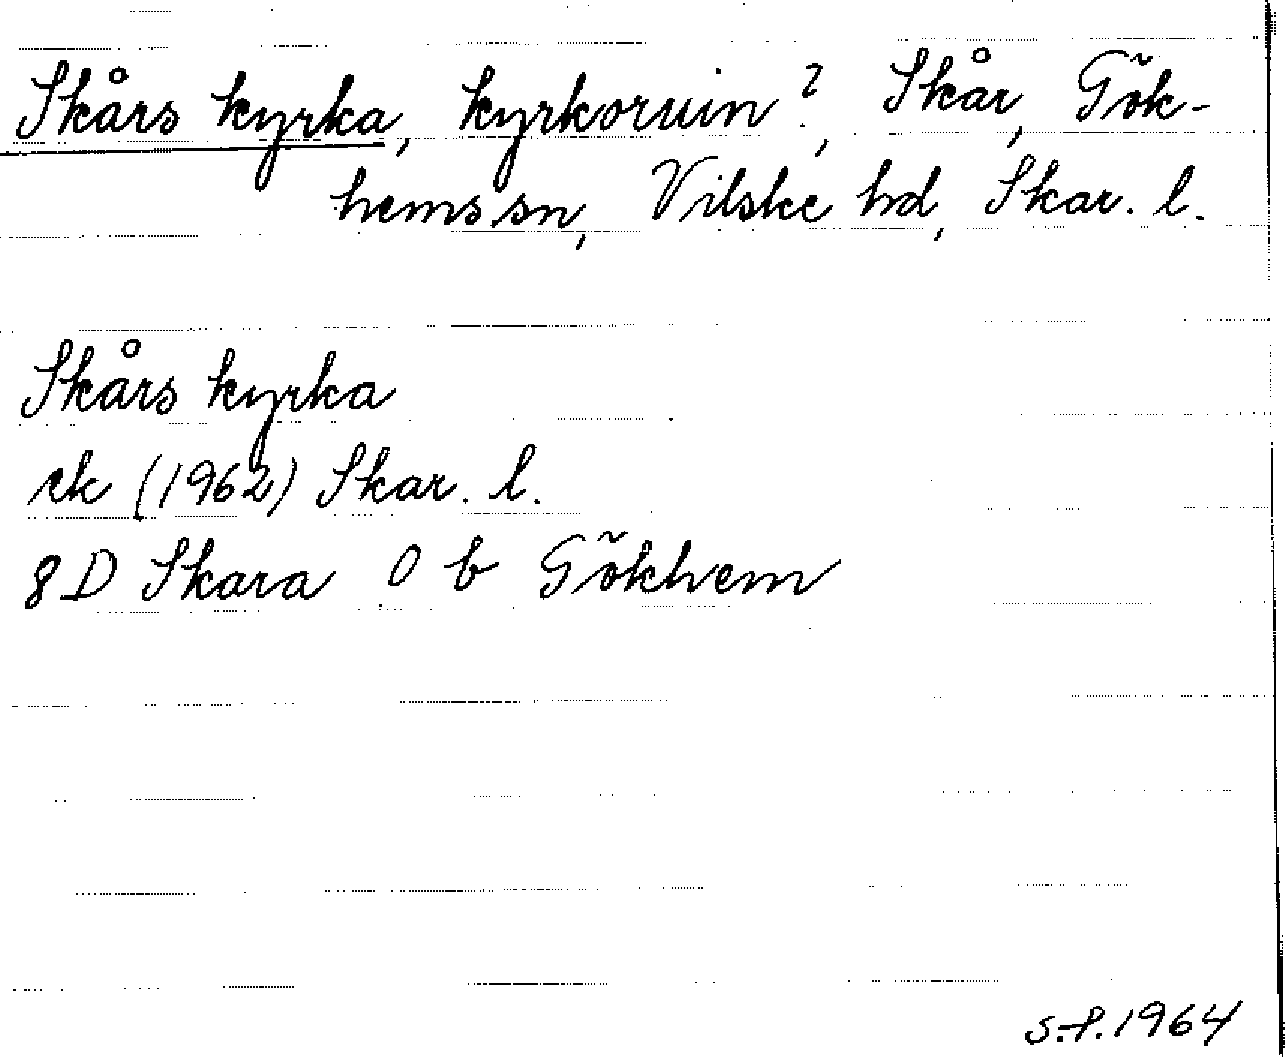 Skårs kyrka, kyrkoruin?, Skår, Gök-
hems sn, Vilske hd, Skar. l.
Skårs kyrka
ek (1962) Skar. l.
8D Skara 0 b Gökhem
1964